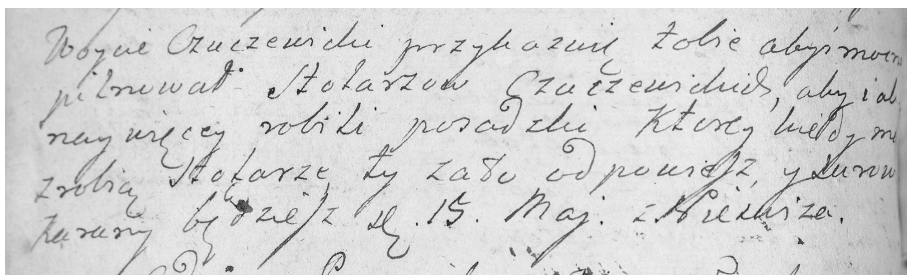 Woycie Czaczewicki przykazuię Tobie abyś mocno
pilnował Stolarzow Czaczewickich, aby i ak
naywięcey robili posadzki Ktorey kiedy nie
zrobią Stolarze, ty zato odpowiesz, y surow
karany będziesz d. 15. Maj. z Nieświża.